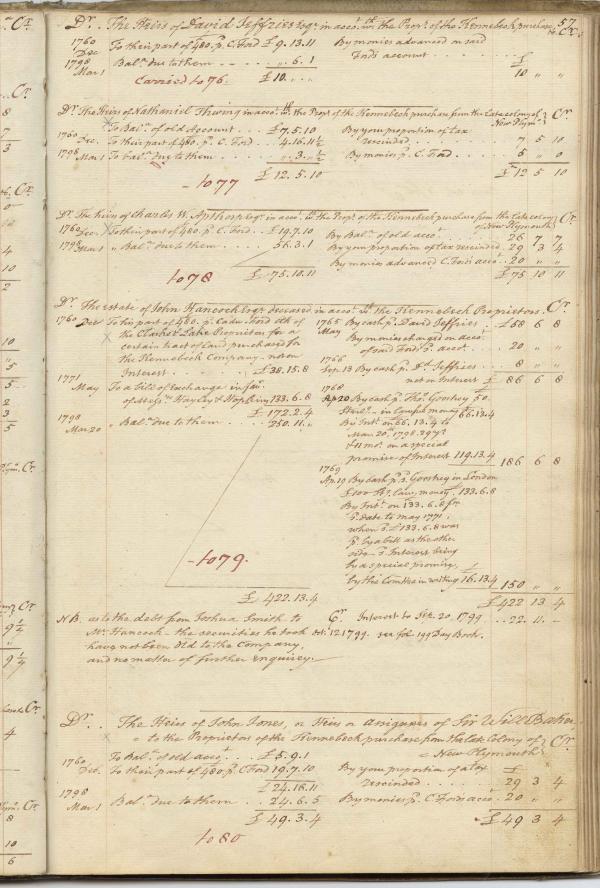 57
Dr. The Heirs of David Jeffries Esqr. in accot. wth. the Propr. of the Kennebeck purchase &c Cr.
1760 Dec To their part of 480. p. C. Ford £ 9.13.11 By monies advanced on said
1798 Mar 1 Bala. due to them . . . " 6.1 Fords account . . . £ 10 " "
Carried to 76. £ 10. " . "
Dr. The Heirs of Nathaniel Thwing in accot. wth. the Propr. of the Kennebeck purchase from the Late colony of New Plymo. Cr.
To Bala. of old Account . . . £ 7.5.10 By your proportion of tax
1760 Dec. To their part of 480. p. C. Ford . . 4.16.11½ rescinded . . . 7 5 10
1798 Mar 1 To bala. due to them . . . " 3. " ½ By monies p. C. Ford . . . 5 " 0
- to 77 £ 12.5.10 £ 12 5 10
Dr. The heirs of Charles W. Apthorp Esqr. in accot. wth. the Propr. of the Kennebeck purchase from the Late colony of New Plymo. Cr.
1760 Dec. To their part of 480. p. C. Ford . . £ 19.7.10 By Bala. of old accot. . . . 26 7 7
1798 Mar 1 " Bala. due to them . . . 56.3.1 By your proportion of tax rescinded 29 3 4
By monies advanced C. Fords accot. . 20 " "
to 78 £ 75.10.11 £ 75 10 11
Dr. The estate of John Hancock Esqr. deceased in accot. wth. the Kennebeck Proprietors. Cr.
1760 Dec To his part of 480. p. Cadwr. Ford dth. of
the Clark & Lake Proprietors for a
certain tract of Land purchased for
the Kennebeck Company - no on
Interest . . . £ 38.15.8
1771 May To a bill of Exchange in favr.
of Messrs. Hayley & Hopkins 133.6.8
£ 172.2.4
1798 Mar 20 " Bala. due to them . . . 250.11. "
- to 79.
£ 422.13.4
1765 May By cash p. David Jeffries . £ 58 6 8
By monies charged on accot.
of said Fords p. accot. . . . 20 " "
1766 Sep. 13 By Cash p. Dd. Jeffries . . 8 " "
not on Interest £ 86 6 8
1768 Ap 20 By Cash p. Thos. Goostrey 50.
Sterlg. - in lawful money 66.13.4
By Int. on 66.13.4 to
Mar 20th. 1798. 29 ys.
& 11 mos. on a special
promise of Interest 119.13.4 186 6 8
1769 Ap. 19 By Cash p. Goostrey in London
£ 100 Stg. Law. money . 133.6.8
By Int. on 133.6.8 fm.
date to may 1771;
when £ 133.6.8 was
pd. by a bill as the other
side - Interest being
by a special promise,
by the Comttee in writing 16.13.4 150 " "
£ 422 13 4
N B. as to the debt from Joshua Smith to
Mr. Hancock - the securities he took
have not been old to the Company,
and no matter of further enquirey.
Cr. Interest to Sep. 20. 1799 . . 22. 11. -
Oct. 12 1799. see fol. 199 Day Book.
Dr. The Heirs of John Jones, or Heirs or Assignees of Sir Will Baker
to the Proprietors of the Kennebeck purchase from the Late Colony of New Plymouth Cr.
To Bala. of old accot. . . £ 5.9.1
1760 Dec. To their part of 480 p. C. Ford 19.7.10 By your proportion of a tax
£ 24.16.11 rescinded . . . £ 29 3 4
1798 Mar 1 Bala. due to them . . . 24.6.5 By monies p. C. Fords accot. . 20 " "
£ 49.3.4 £ 49 3 4
to 80